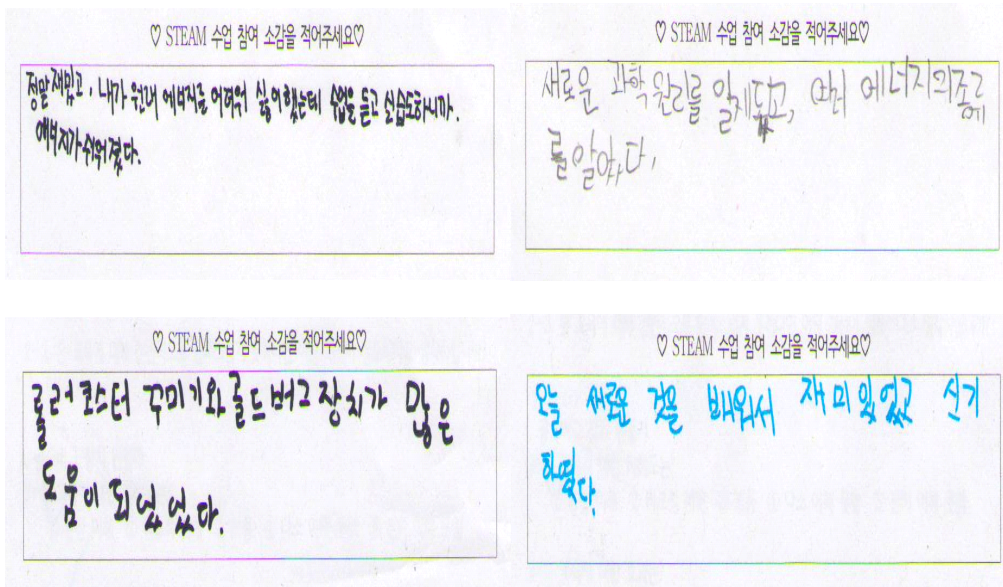 ♡ STEAM 수업 참여 소감을 적어주세요♡
정말 재밌고, 내가 원래 에너지를 어려워 싫어했는데 수업을 듣고 실습도하니까.
에너지가 쉬워졌다.
♡ STEAM 수업 참여 소감을 적어주세요♡
새로운 과학 원리를 알게돼고, 여러 에너지의종류
를 알았다.
♡ STEAM 수업 참여 소감을 적어주세요♡
롤러코스터 꾸미기와 골드버그장치가 많은
도움이 되었었다.
♡ STEAM 수업 참여 소감을 적어주세요♡
오늘 새로운 것을 배워서 재미있었고 신기
하였다.